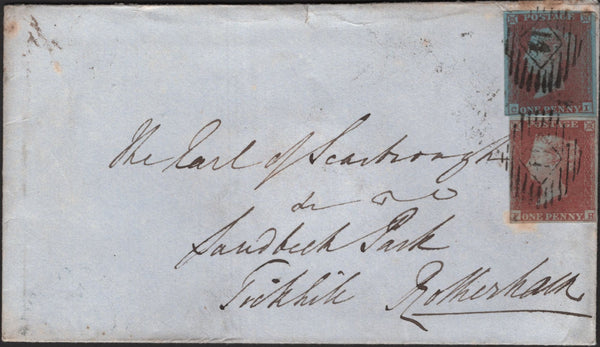 POSTAGE
ONE PENNY
POSTAGE
ONE PENNY
The Earl of Scarbrough
&c &c
Sandbeck Park
Tickhill Rotherham